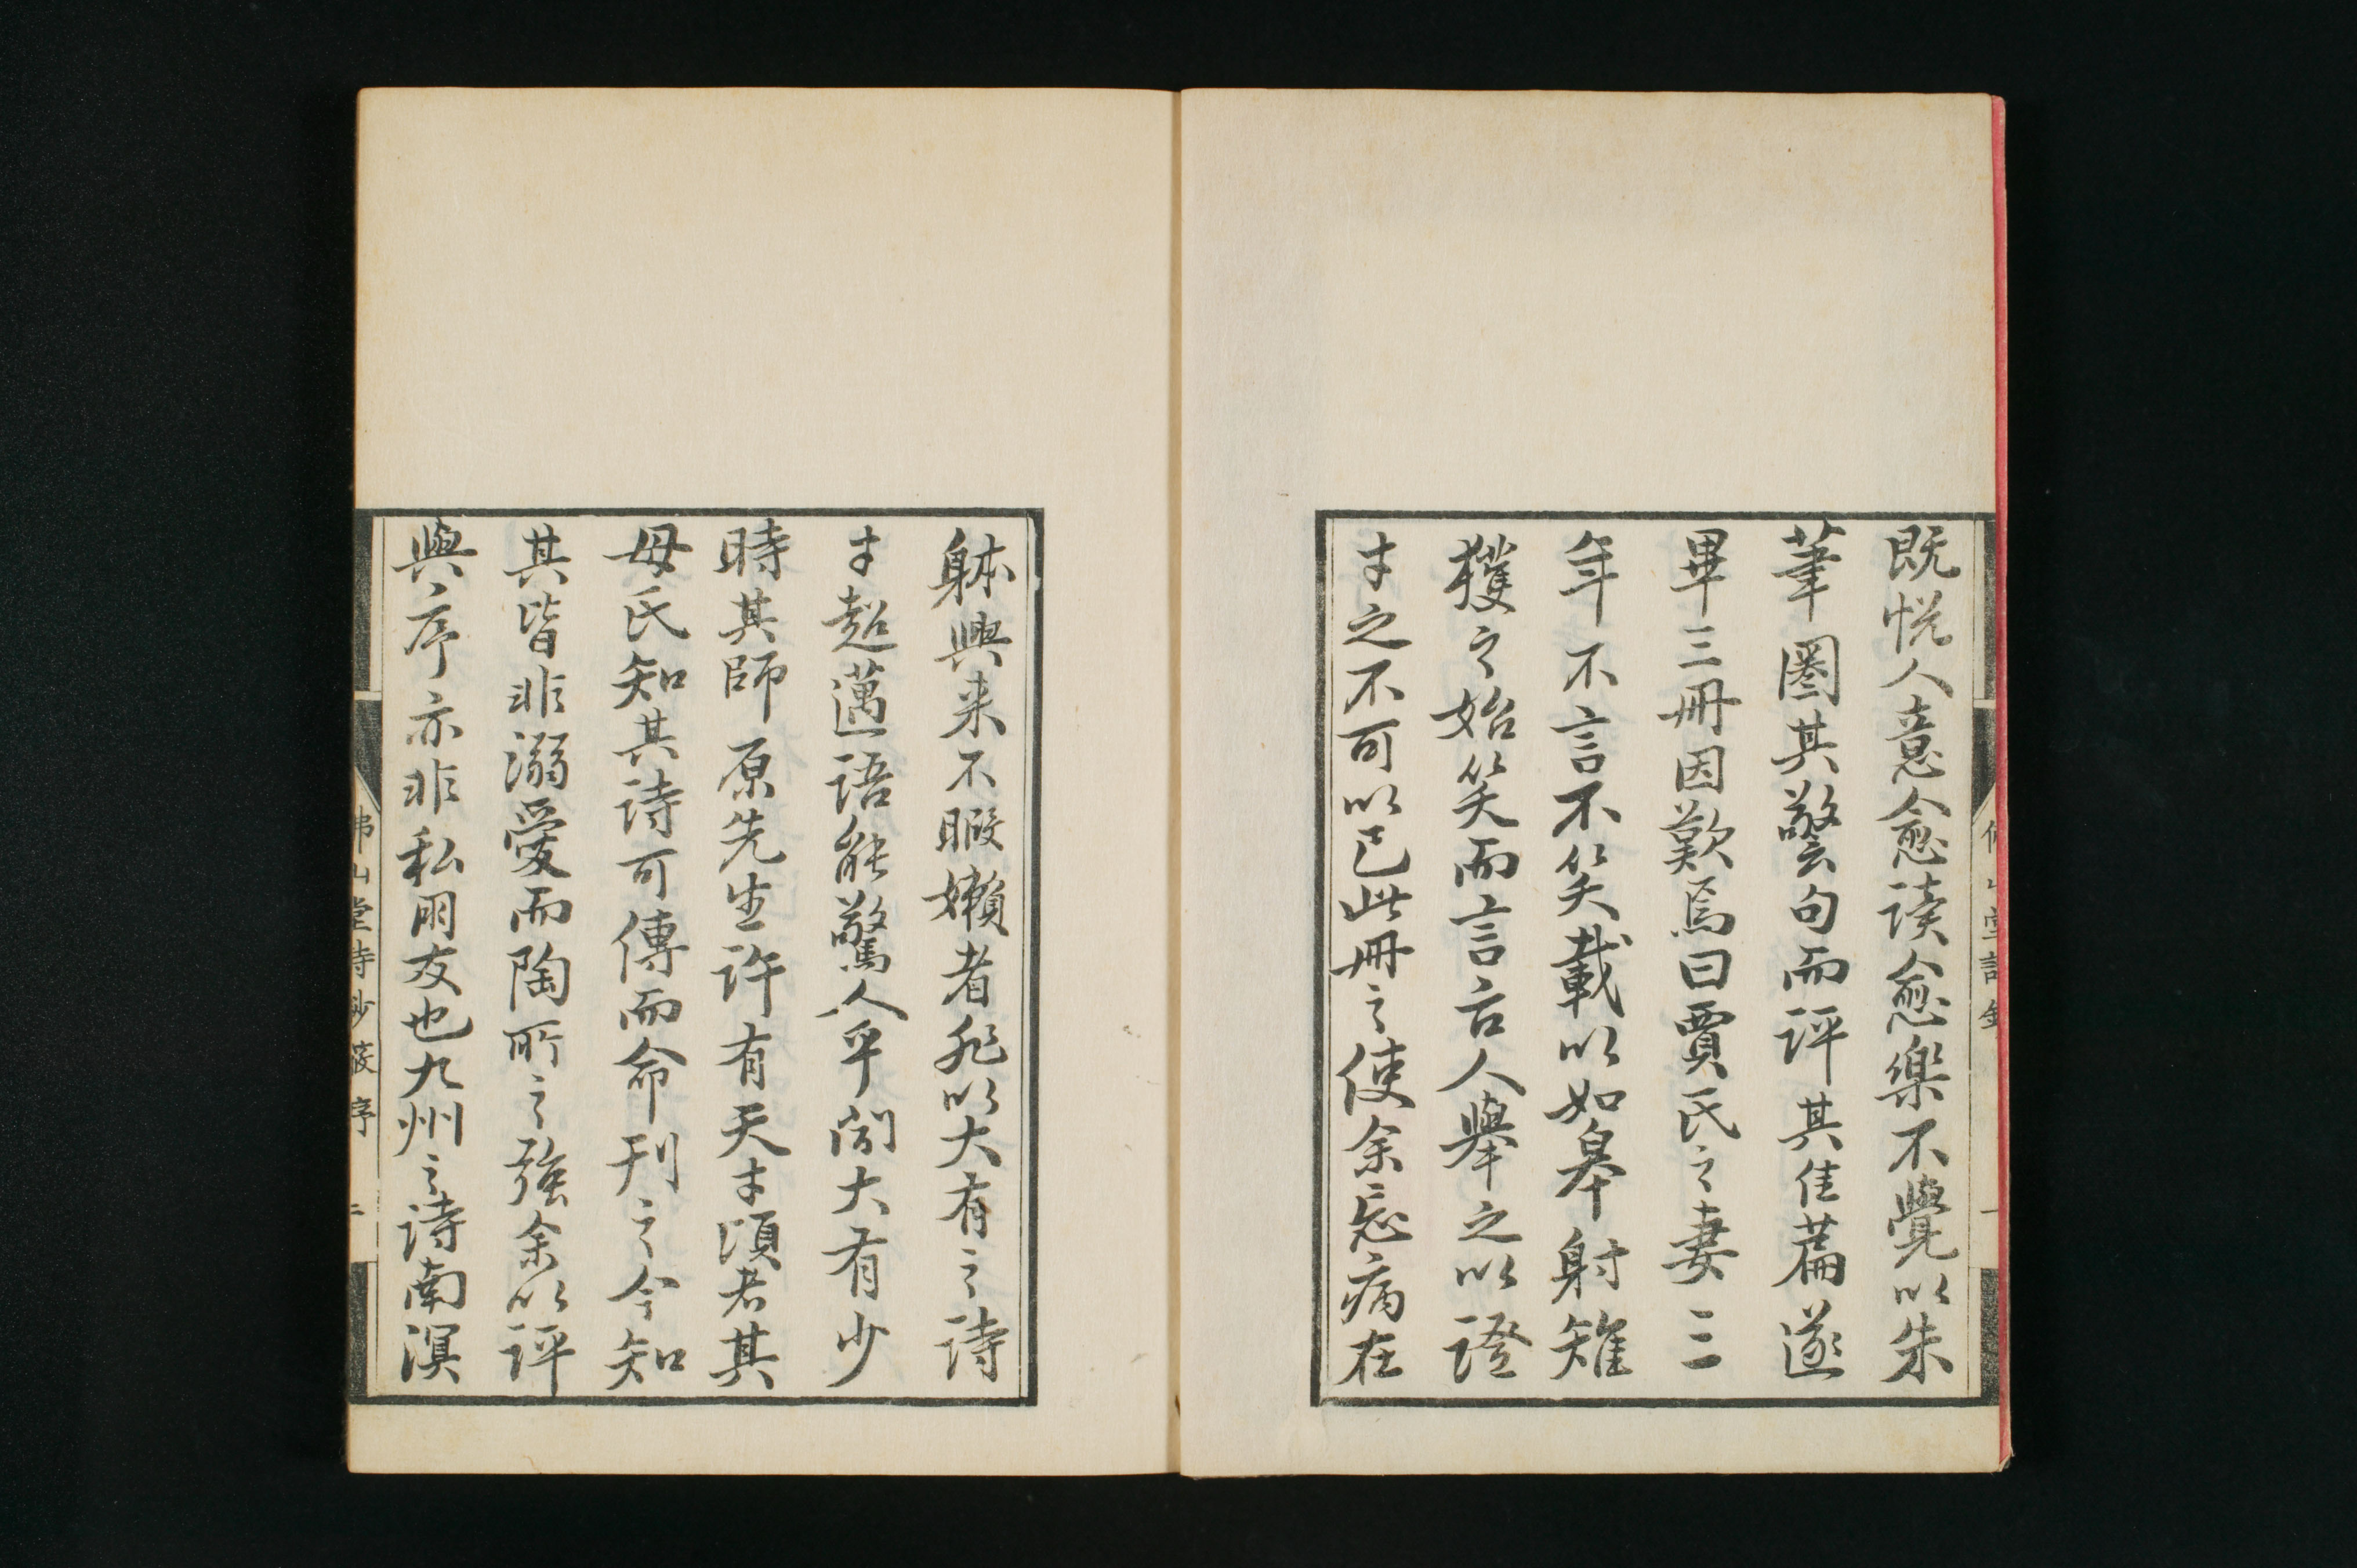 既悦人意愈読愈樂不覺以朱
筆圏其警句而評其佳篇遂
畢三冊因歎焉曰賈氏之妻三
年不言不笑載以如皋射雉
獲之始笑而言古人舉之以證
才之不可以已此冊之使余忘病在
躰興来不暇嬾者非以大有之詩
才超邁語能驚人乎聞大有少
時其師原先生許有天才頃者其
母氏知其詩可傳而命刊之今知
其皆非溺愛而陶所之強余以評
與序亦非私朋友也九州之詩南溟
佛山堂詩鈔
一
佛山堂詩鈔 序 二